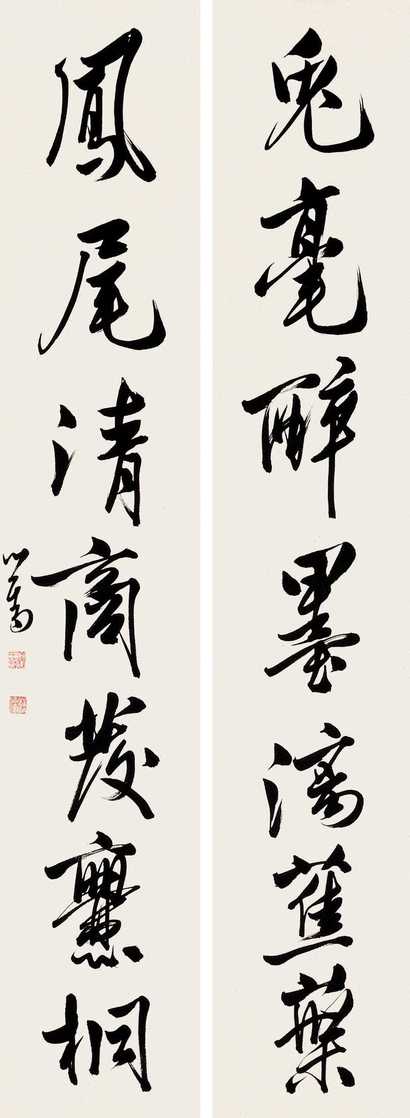 兔毫醉墨漓蕉葉
鳳尾清商發爨桐
心畬